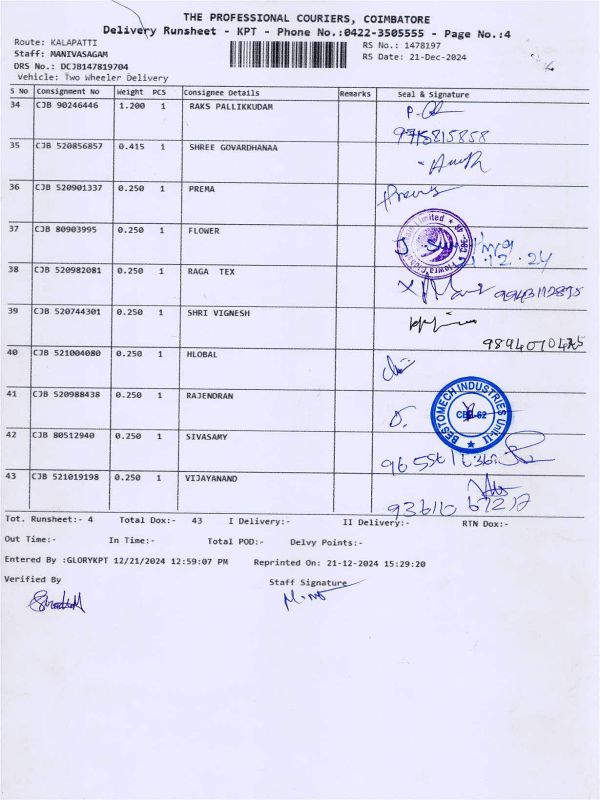 THE PROFESSIONAL COURIERS, COIMBATORE
Delivery Runsheet - KPT - Phone No.:0422-3505555 - Page No.:4
Route: KALAPATTI
Staff: MANIVASAGAM
DRS No.: DCJB147819704
Vehicle: Two Wheeler Delivery
RS No.: 1478197
RS Date: 21-Dec-2024
S No Consignment No Weight PCS Consignee Details Remarks Seal & Signature
34 CJB 90246446 1.200 1 RAKS PALLIKKUDAM
9715815858
35 CJB 520856857 0.415 1 SHREE GOVARDHANAA
36 CJB 520901337 0.250 1 PREMA
Prema
37 CJB 80903995 0.250 1 FLOWER
Limited
38 CJB 520982081 0.250 1 RAGA TEX
39 CJB 520744301 0.250 1 SHRI VIGNESH
40 CJB 521004080 0.250 1 HLOBAL
41 CJB 520988438 0.250 1 RAJENDRAN
BESTOMECH INDUSTRIES Unit-II
42 CJB 80512940 0.250 1 SIVASAMY
43 CJB 521019198 0.250 1 VIJAYANAND
Tot. Runsheet:- 4 Total Dox:- 43 I Delivery:- II Delivery:- RTN Dox:-
Out Time:- In Time:- Total POD:- Delvy Points:-
Entered By :GLORYKPT 12/21/2024 12:59:07 PM Reprinted On: 21-12-2024 15:29:20
Verified By
Staff Signature